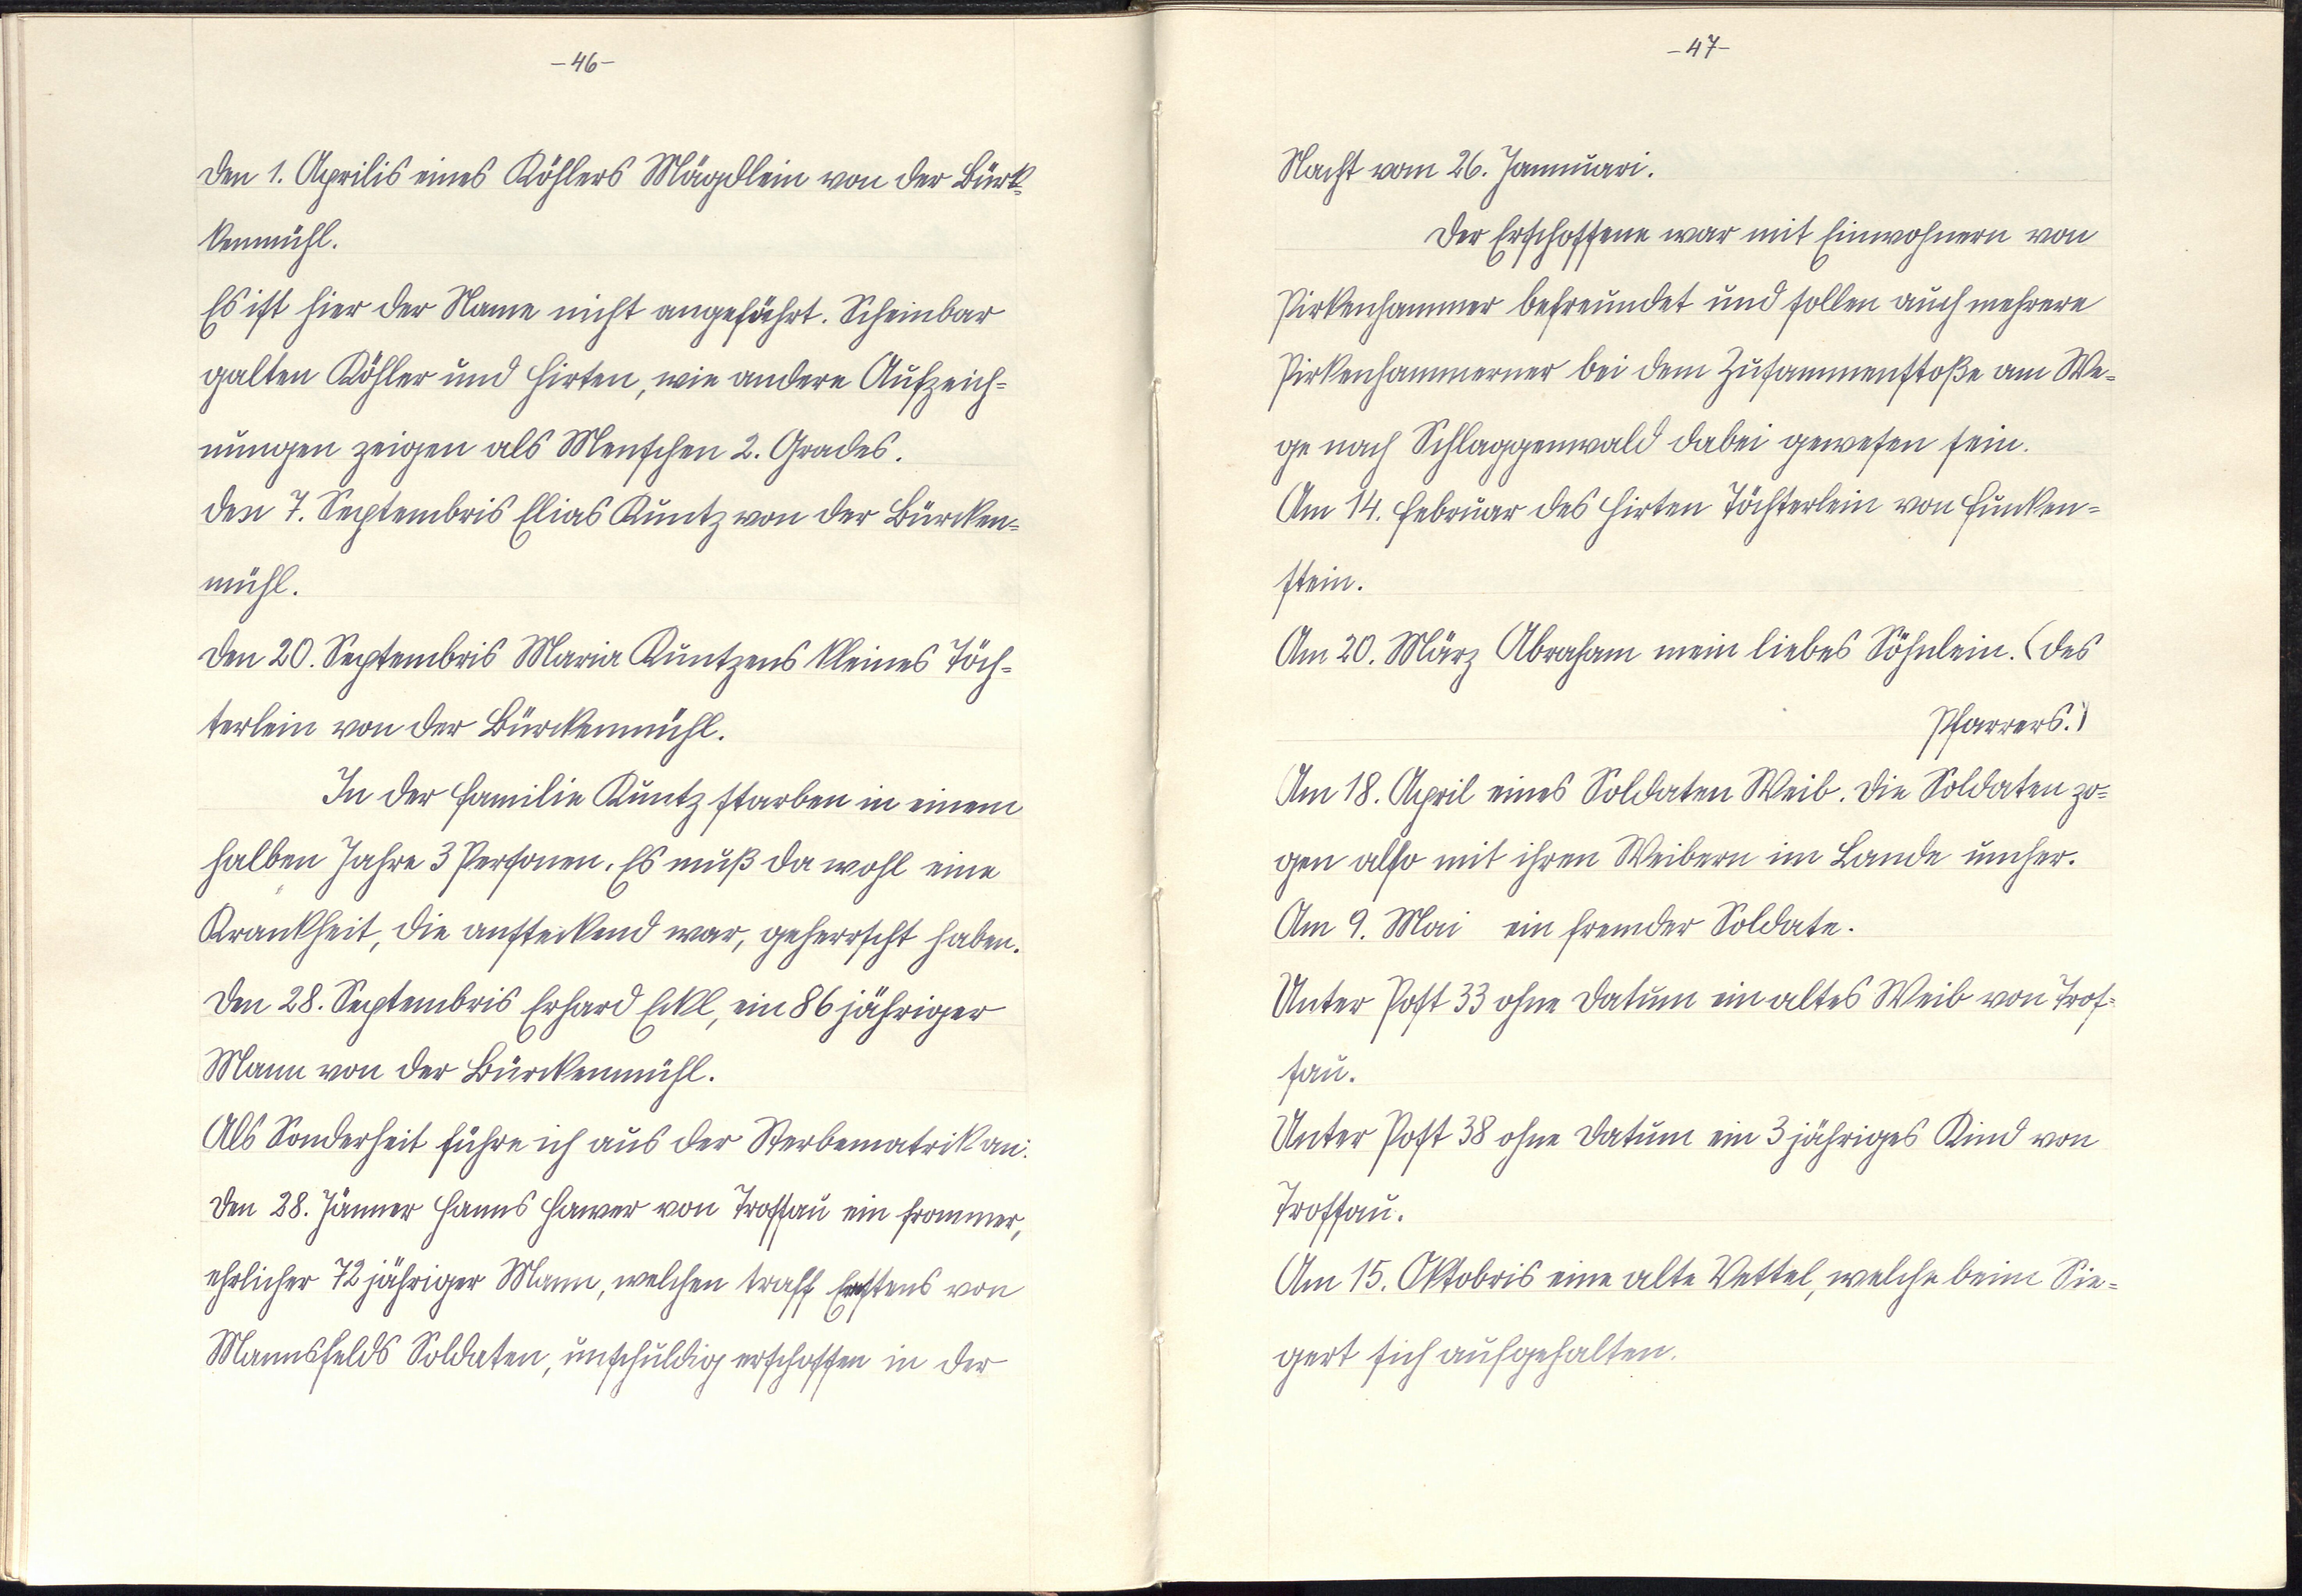 -46-
Den 1. Aprilis eines Köhlers Mägdlein von der Bürk-
kenmühl.
Es ist hier der Name nicht angeführt. Scheinbar
galten Köhler und Hirten, wie andere Aufzeich-
nungen zeigen als Menschen 2. Grades.
Den 7. Septembris Elias Kuntz von der Bürcken-
mühl.
Den 20. Septembris Maria Kuntzens kleines Töch-
terlein von der Bürckenmühl.
In der Familie Kuntz starben in einem
halben Jahre 3 Personen. Es muß da wohl eine
Krankheit, die ansteckend war, geherrscht haben.
Den 28. Septembris Erhard Eckl, ein 86 jähriger
Mann von der Bürckenmühl.
Als Sonderheit führe ich aus der Sterbematrik an:
Den 28. Jänner Hanns Hawer von Trossau ein frommer,
ehrlicher 72 jähriger Mann, welchen traff Ernstens von
Mannsfelds Soldaten, unschuldig erschossen in der
-47-
Nacht vom 26. Jannuari.
Der Erschossene war mit Einwohnern von
Pirkenhammer befreundet und sollen auch mehrere
Pirkenhammerner bei dem Zusammenstoße am We-
ge nach Schlaggenwald dabei gewesen sein.
Am 14. Februar des Hirten Töchterlein von Funken-
stein.
Am 20. März Abraham mein liebes Söhnlein. (Des
Pfarrers.)
Am 18. April eines Soldaten Weib. Die Soldaten zo-
gen also mit ihren Weibern im Lande umher.
Am 9. Mai ein fremder Soldate.
Unter Post 33 ohne Datum ein altes Weib von Tros-
sau.
Unter Post 38 ohne Datum ein 3 jähriges Kind von
Trossau.
Am 15. Oktobris eine alte Vettel, welche beim Sie-
gert sich aufgehalten.